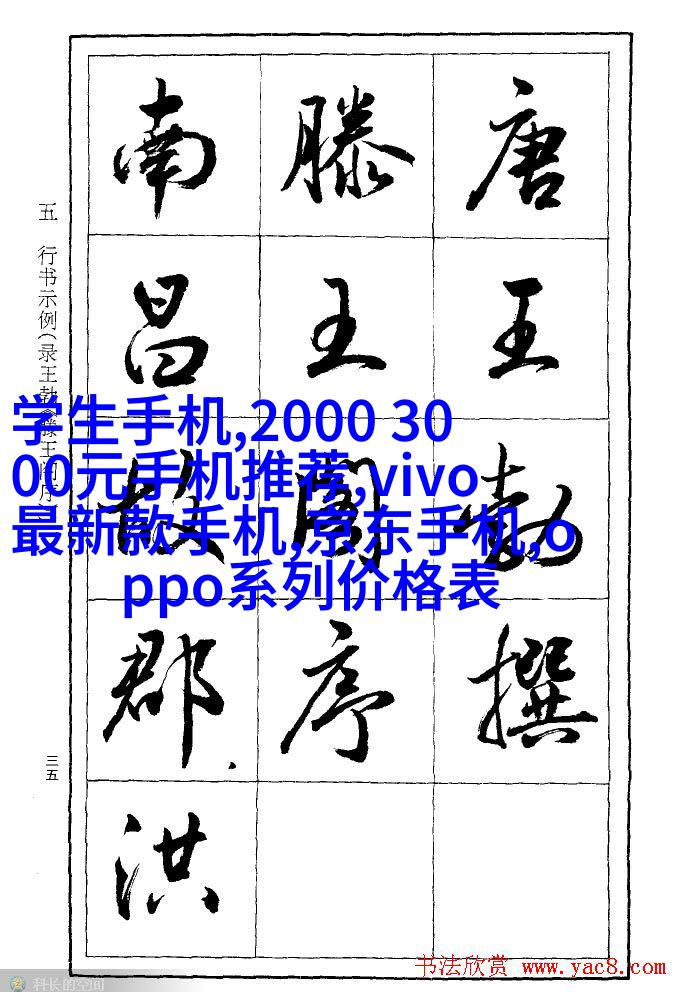 唐王勃撰
滕王阁序
南昌故郡.洪
五 行书示例(录王勃《滕王阁序
三五
学生手机,2000 30
00元手机推荐,vivo
最新款手机,京东手机,o
ppo系列价格表
书法欣赏 www.yac8.com
科长的空间